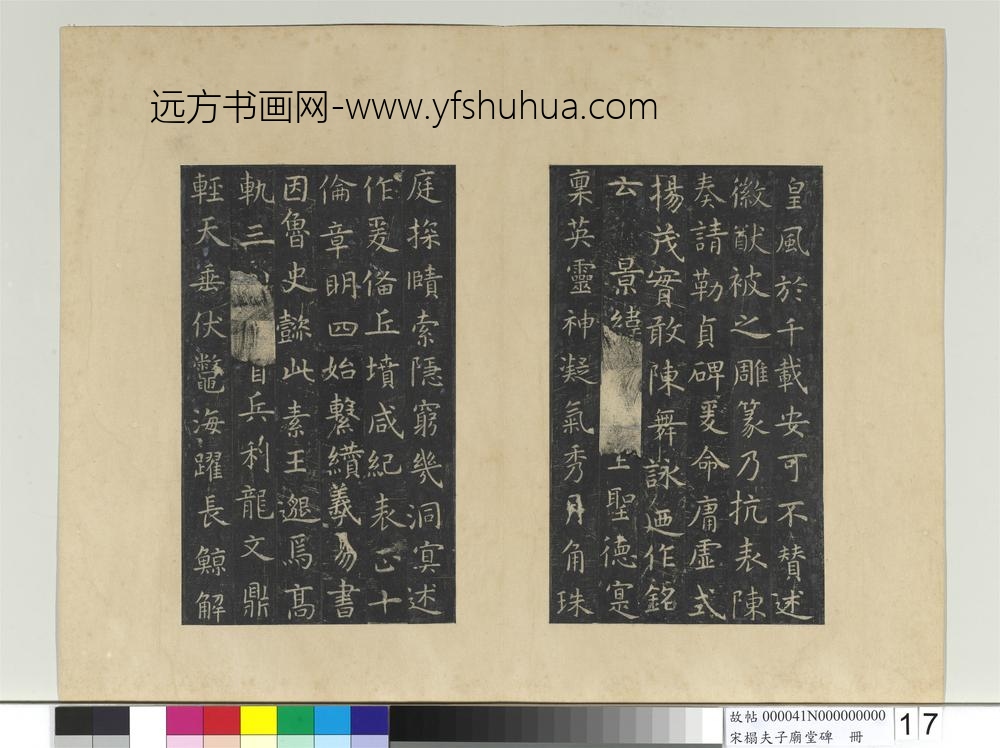 远方书画网-www.yfshuhua.com
皇風於千載安可不贊述
徽猷被之雕篆乃抗表陳
奏請勒貞碑爰命庸虛式
揚茂實敢陳舞詠迺作銘
云 景緯 聖德寔
稟英靈神凝氣秀月角珠
庭探賾索隱窮幾洞冥述
作爰俻丘墳咸紀表正十
倫章明四始繫纘羲易書
因魯史懿此素王邈焉高
軌三 兵利龍文鼎
輕天垂伏鼈海躍長鯨解
故帖 000041N000000000
宋榻夫子廟堂碑 冊
17